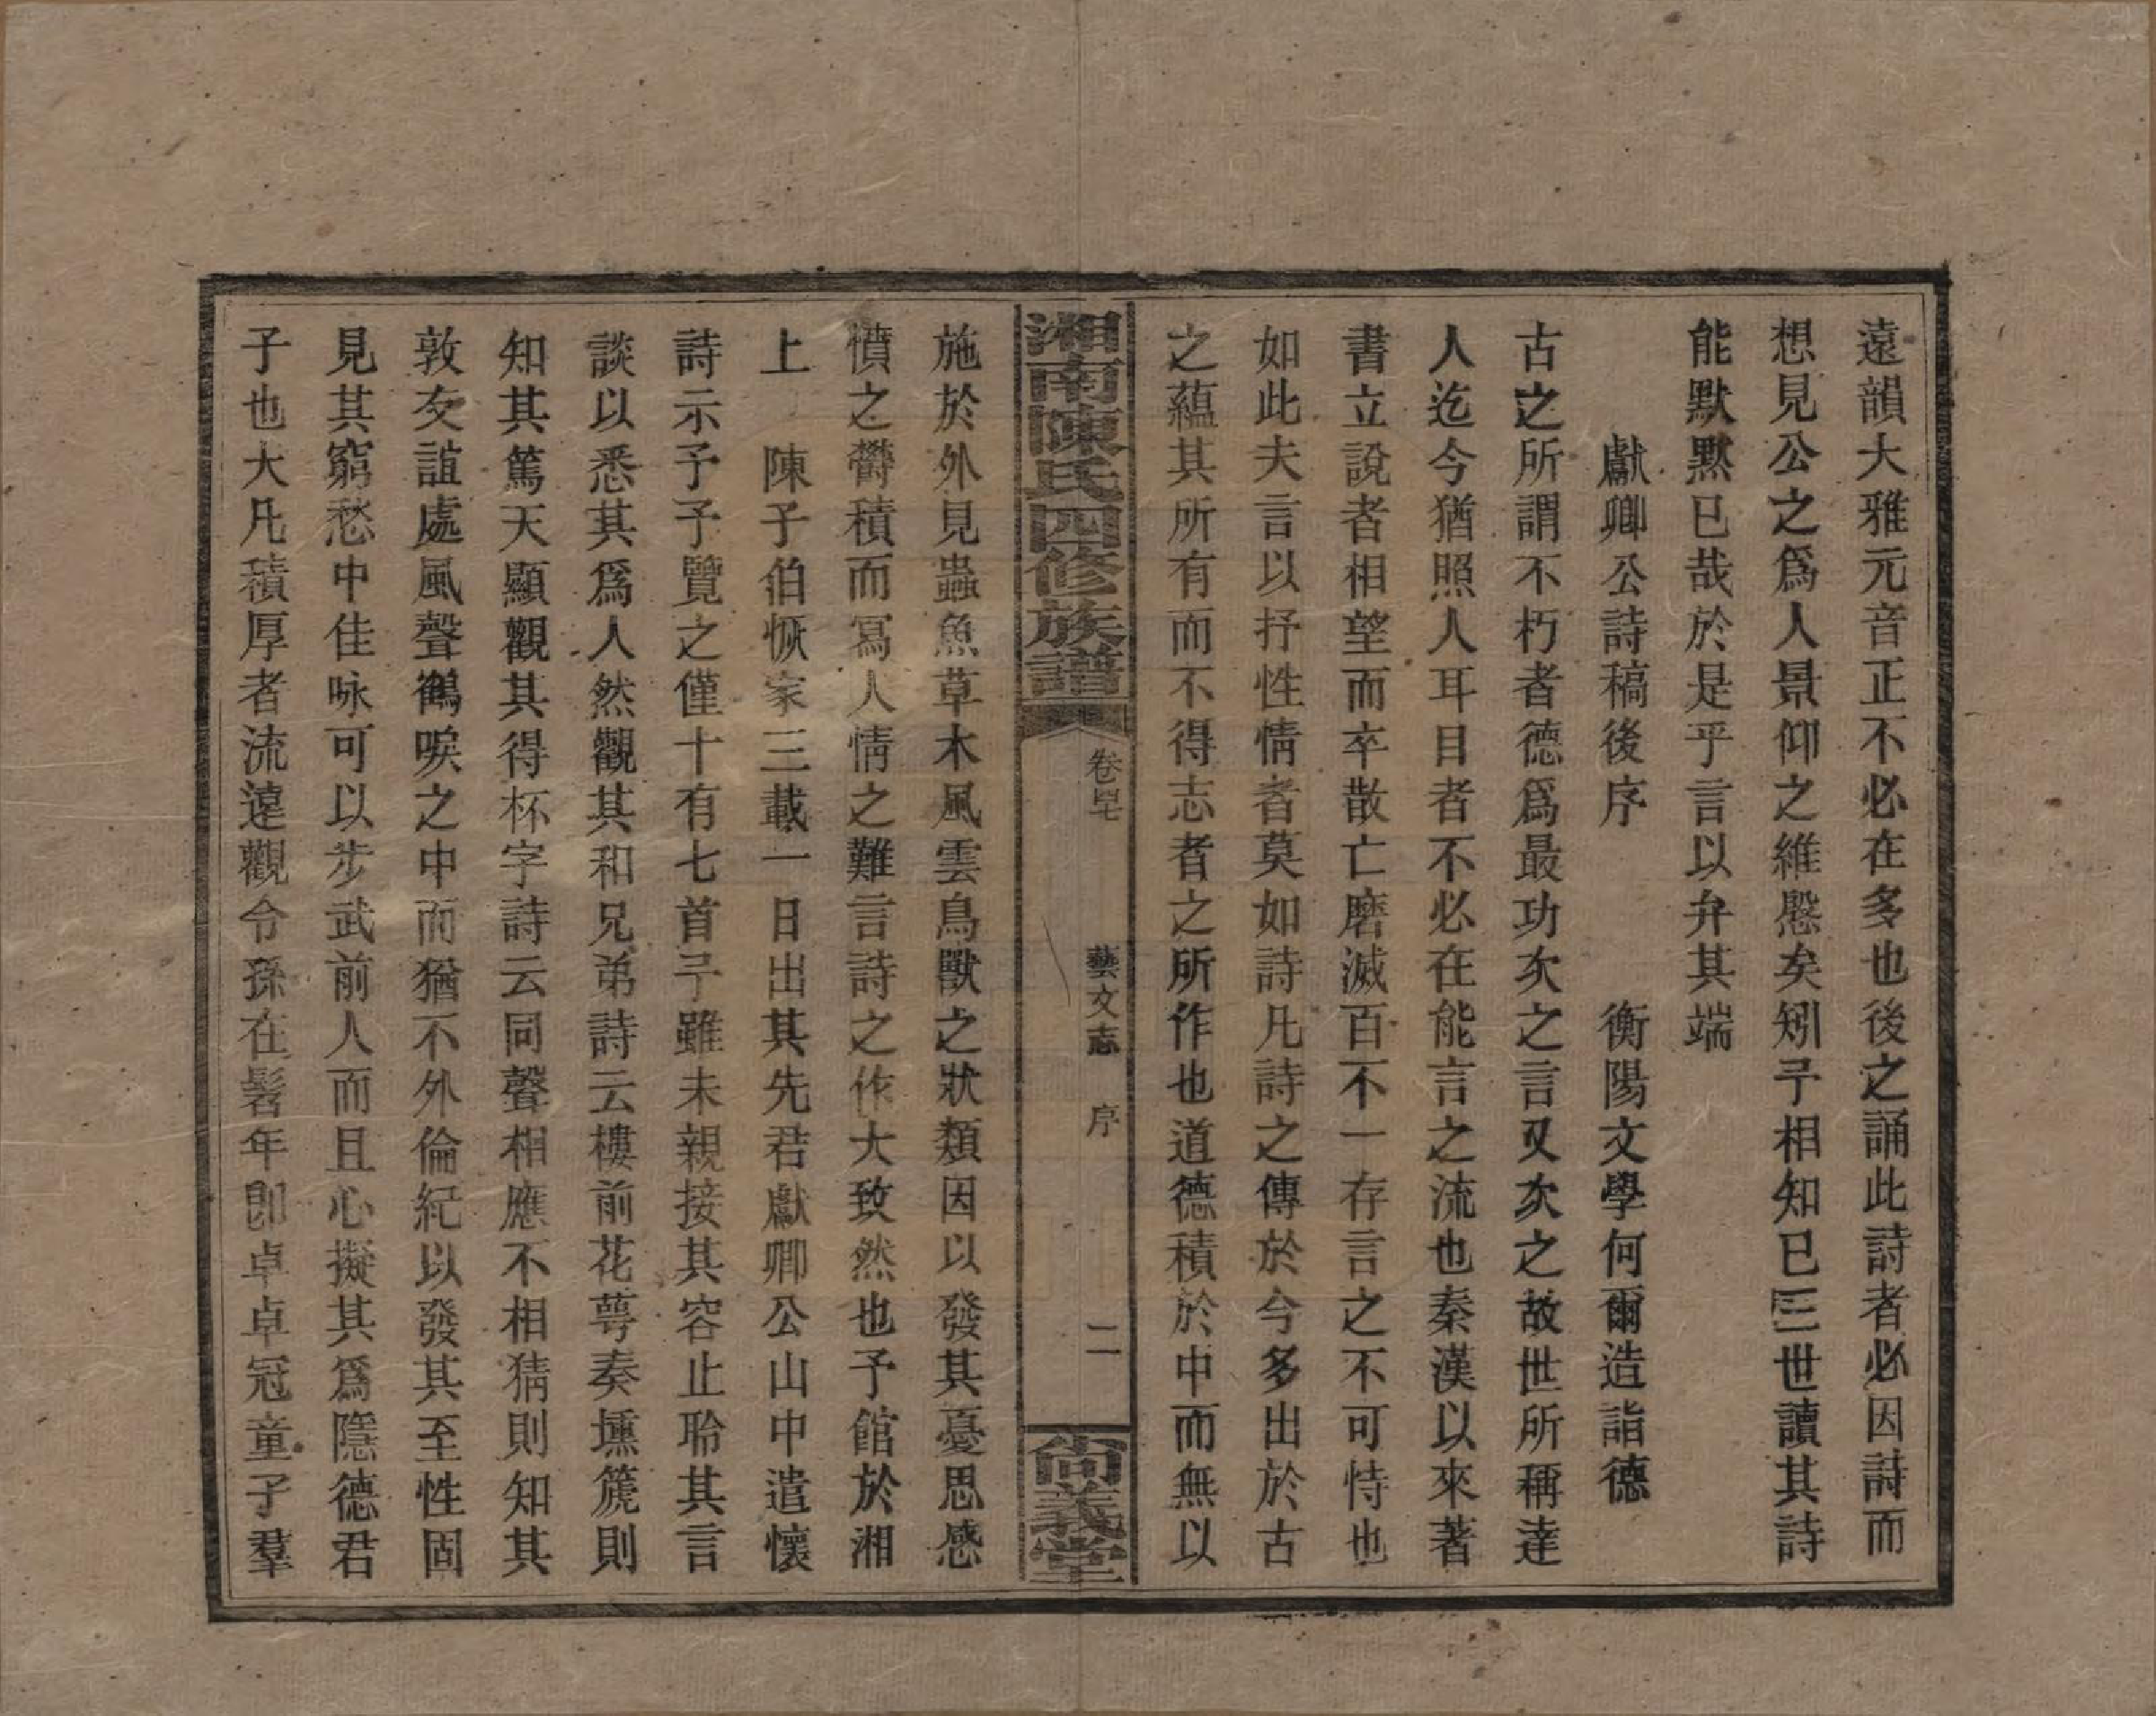 遠韻大雅元音正不必在多也後之誦此詩者必因詩而
想見公之爲人景仰之維慇矣矧予相知巳三世讀其詩
能默默已哉於是乎言以弁其端
獻卿公詩稿後序　衡陽文學何爾造詣德
古之所謂不朽者德爲最功次之言又次之故世所稱達
人迄今猶照人耳目者不必在能言之流也秦漢以來著
書立說者相望而卒散亡磨滅百不一存言之不可恃也
如此夫言以抒性情者莫如詩凡詩之傳於今多出於古
之蘊其所有而不得志者之所作也道德積於中而無以
湘南陳氏四修族譜　卷　藝文志　序　二　尙義堂
施於外見蟲魚草木風雲鳥獸之狀類因以發其憂思感
憤之欝積而寫人情之難言詩之作大致然也予館於湘
上　陳子伯恢家三載一日出其先君獻卿公山中遣懷
詩示予予覽之僅十有七首予雖未親接其容止聆其言
談以悉其爲人然觀其和兄弟詩云樓前花萼奏壎篪則
知其篤天顯觀其得杯字詩云同聲相應不相猜則知其
敦友誼處風聲鶴唳之中而猶不外倫紀以發其至性固
見其窮愁中佳咏可以步武前人而且心擬其爲隱德君
子也大凡積厚者流遠觀令孫在髫年即卓卓冠童子羣